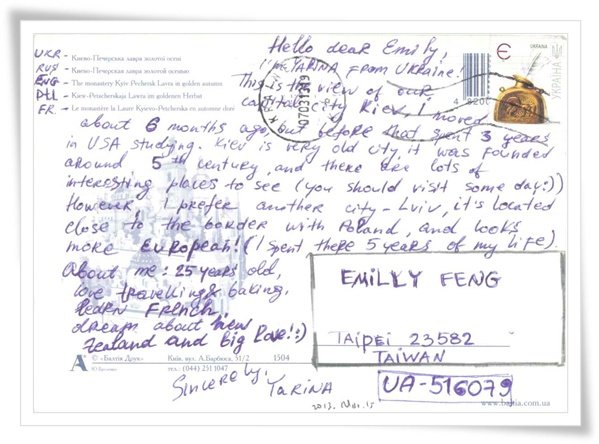 UKR - Києво-Печерська лавра золотої осені
RUS - Киево-Печерская лавра золотой осенью
ENG - The monastery Kyiv Pechersk Lavra in golden autumn
DEU - Kiev-Petscherskaja Lavra im goldenen Herbst
FR - Le monastère la Laure Kyevo-Petcherska en automne doré
Україна
УКРАЇНА
Є
Hello dear Emily,
I'm YARINA from UKraine!
This is the view of our
capital city Kiev, I moved
about 6 months ago, but before that spent 3 years
in USA studying. Kiev is very old city, it was founded
around 5th century, and there are lots of
interesting places to see (you should visit some day:))
However, I prefer another city - Lviv, it's located
close to the border with Poland, and looks
more European! (I spent there 5 years of my life).
About me: 25 years old,
love travelling & baking,
learn French,
dream about New
Zealand and big love!:)
Sincerely,
YARINA
EMILLY FENG
TAIPEI 23582
TAIWAN
UA-516079
2013. Nov. 15
© «Балтія Друк»
Київ, вул. А.Барбюса, 51/2
тел.: (044) 251 1047
1504
www.baltia.com.ua